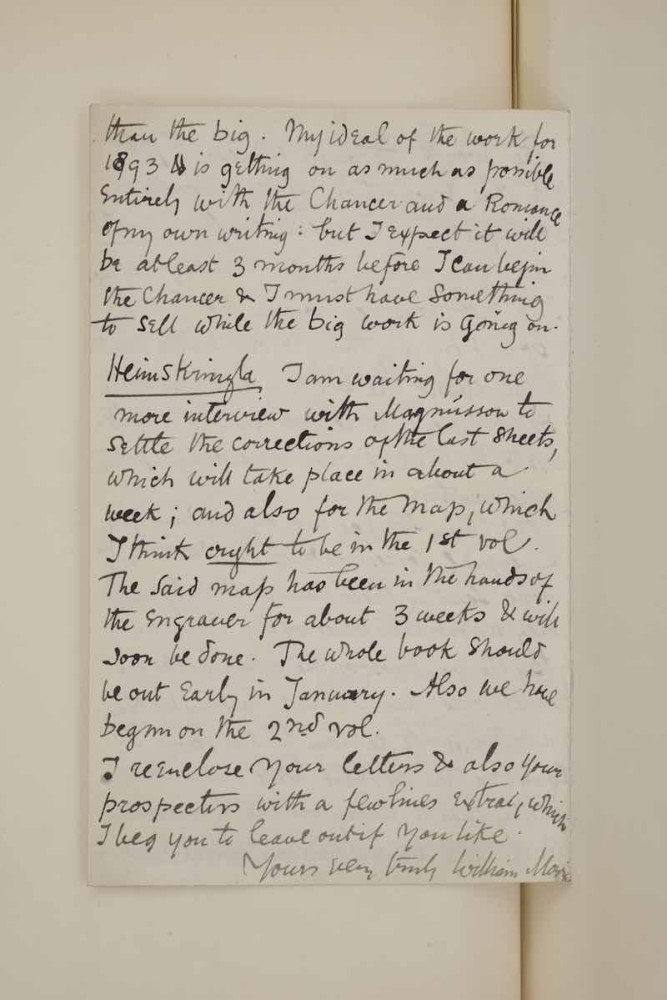 than the big. My ideal of the work for
1893 is getting on as much as possible
Entirely with the Chaucer and a Romance
of my own writing: but I expect it will
be at least 3 months before I can begin
the Chaucer & I must have Something
to sell while the big work is going on.
Heimskringla I am waiting for one
more interview with Magnússon to
settle the corrections of the last sheets,
which will take place in about a
week; and also for the map, which
I think ought to be in the 1st vol.
The said map has been in the hands of
the Engraver for about 3 weeks & will
soon be done. The whole book should
be out Early in January. Also we have
begun on the 2nd vol.
I reenclose your letters & also your
prospectus with a few lines extra, which
I beg you to leave out if you like.
Yours very truly William Morris